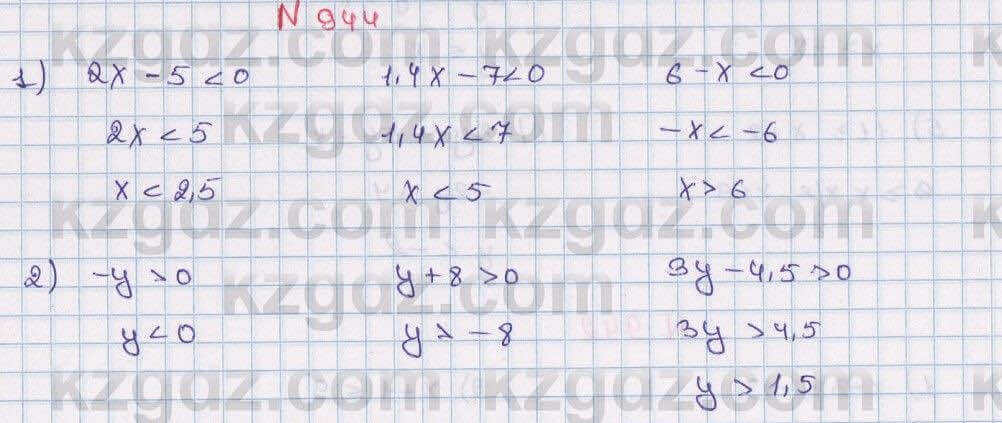 N 944
1) 2x - 5 < 0 1,4x - 7 < 0 6 - x < 0
2x < 5 1,4x < 7 -x < -6
x < 2,5 x < 5 x > 6
2) -y > 0 y + 8 > 0 3y - 4,5 > 0
y < 0 y > -8 3y > 4,5
y > 1,5
kzgdz.com
kzgdz.com
kzgdz.com
kzgdz.com
kzgdz.com